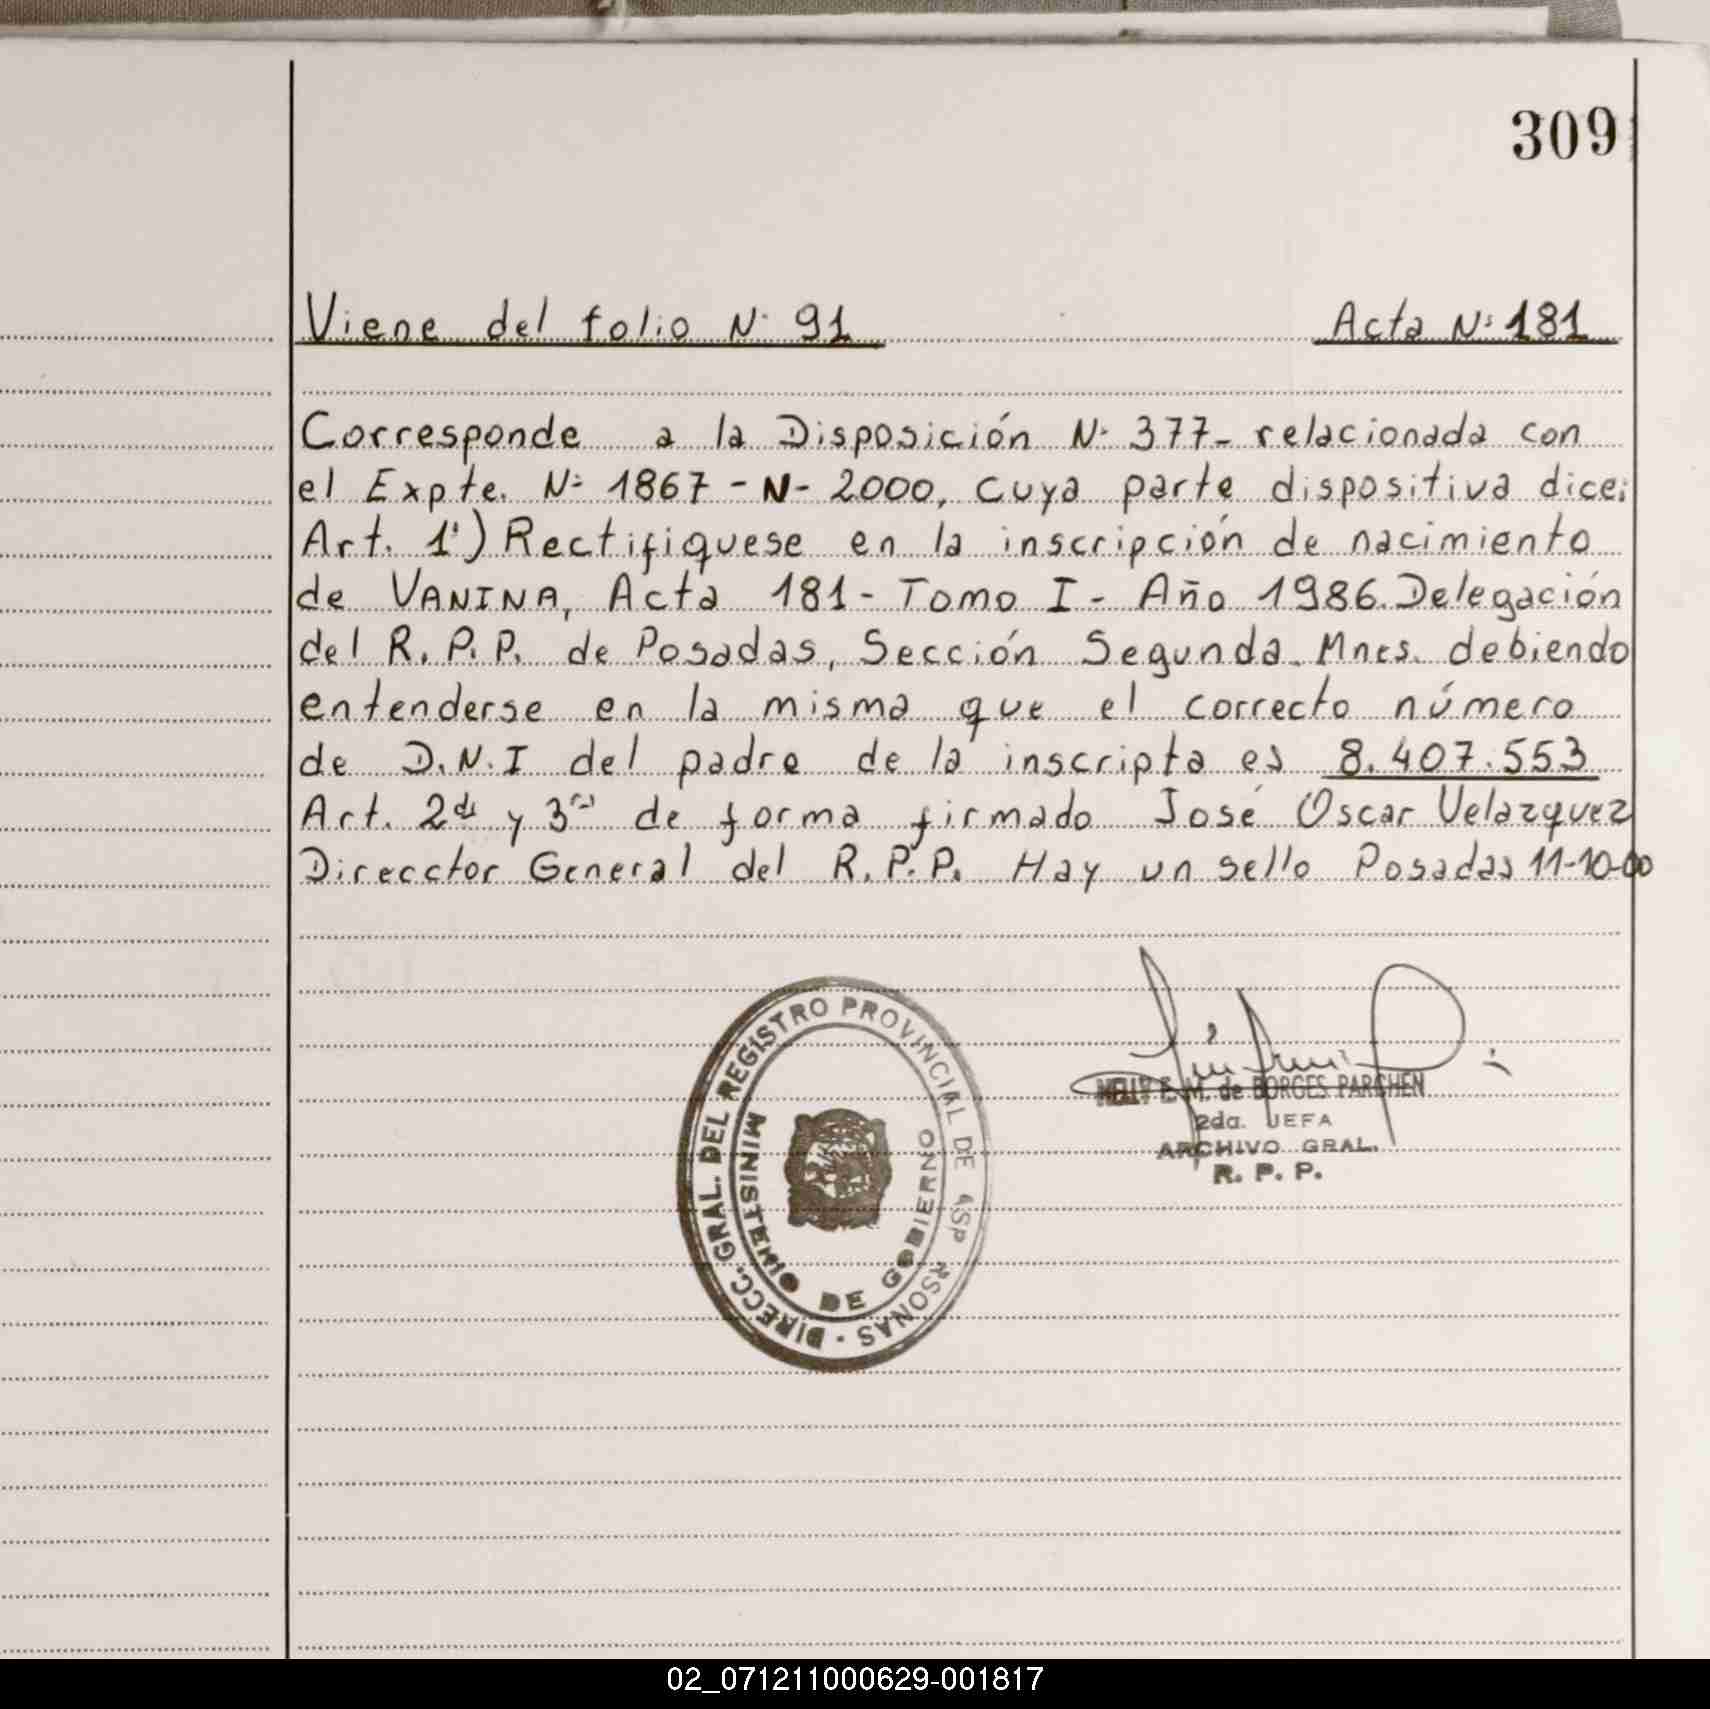 309
Viene del folio Nº 91 Acta Nº 181
Corresponde a la Disposición Nº 377- relacionada con
el Expte. Nº 1867 - N - 2000, cuya parte dispositiva dice:
Art. 1º) Rectifiquese en la inscripción de nacimiento
de VANINA, Acta 181 - Tomo I - Año 1986. Delegación
del R. P. P. de Posadas, Sección Segunda. Mnes. debiendo
entenderse en la misma que el correcto número
de D.N.I del padre de la inscripta es 8.407.553
Art. 2do y 3ro de forma firmado José Oscar Velazquez
Direcctor General del R. P. P. Hay un sello Posadas 11-10-00
DIRECC. GRAL. DEL REGISTRO PROVINCIAL DE LAS P RSONAS
MINISTERIO DE GOBIERNO
NELLY E. M. de BORGES PARCHEN
2da. JEFA
ARCHIVO GRAL.
R. P. P.
02_071211000629-001817